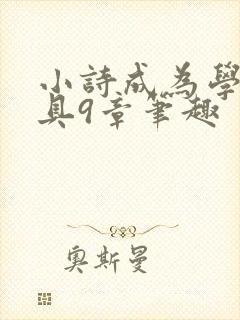 小詩成為學
具9章筆趣
奧斯曼